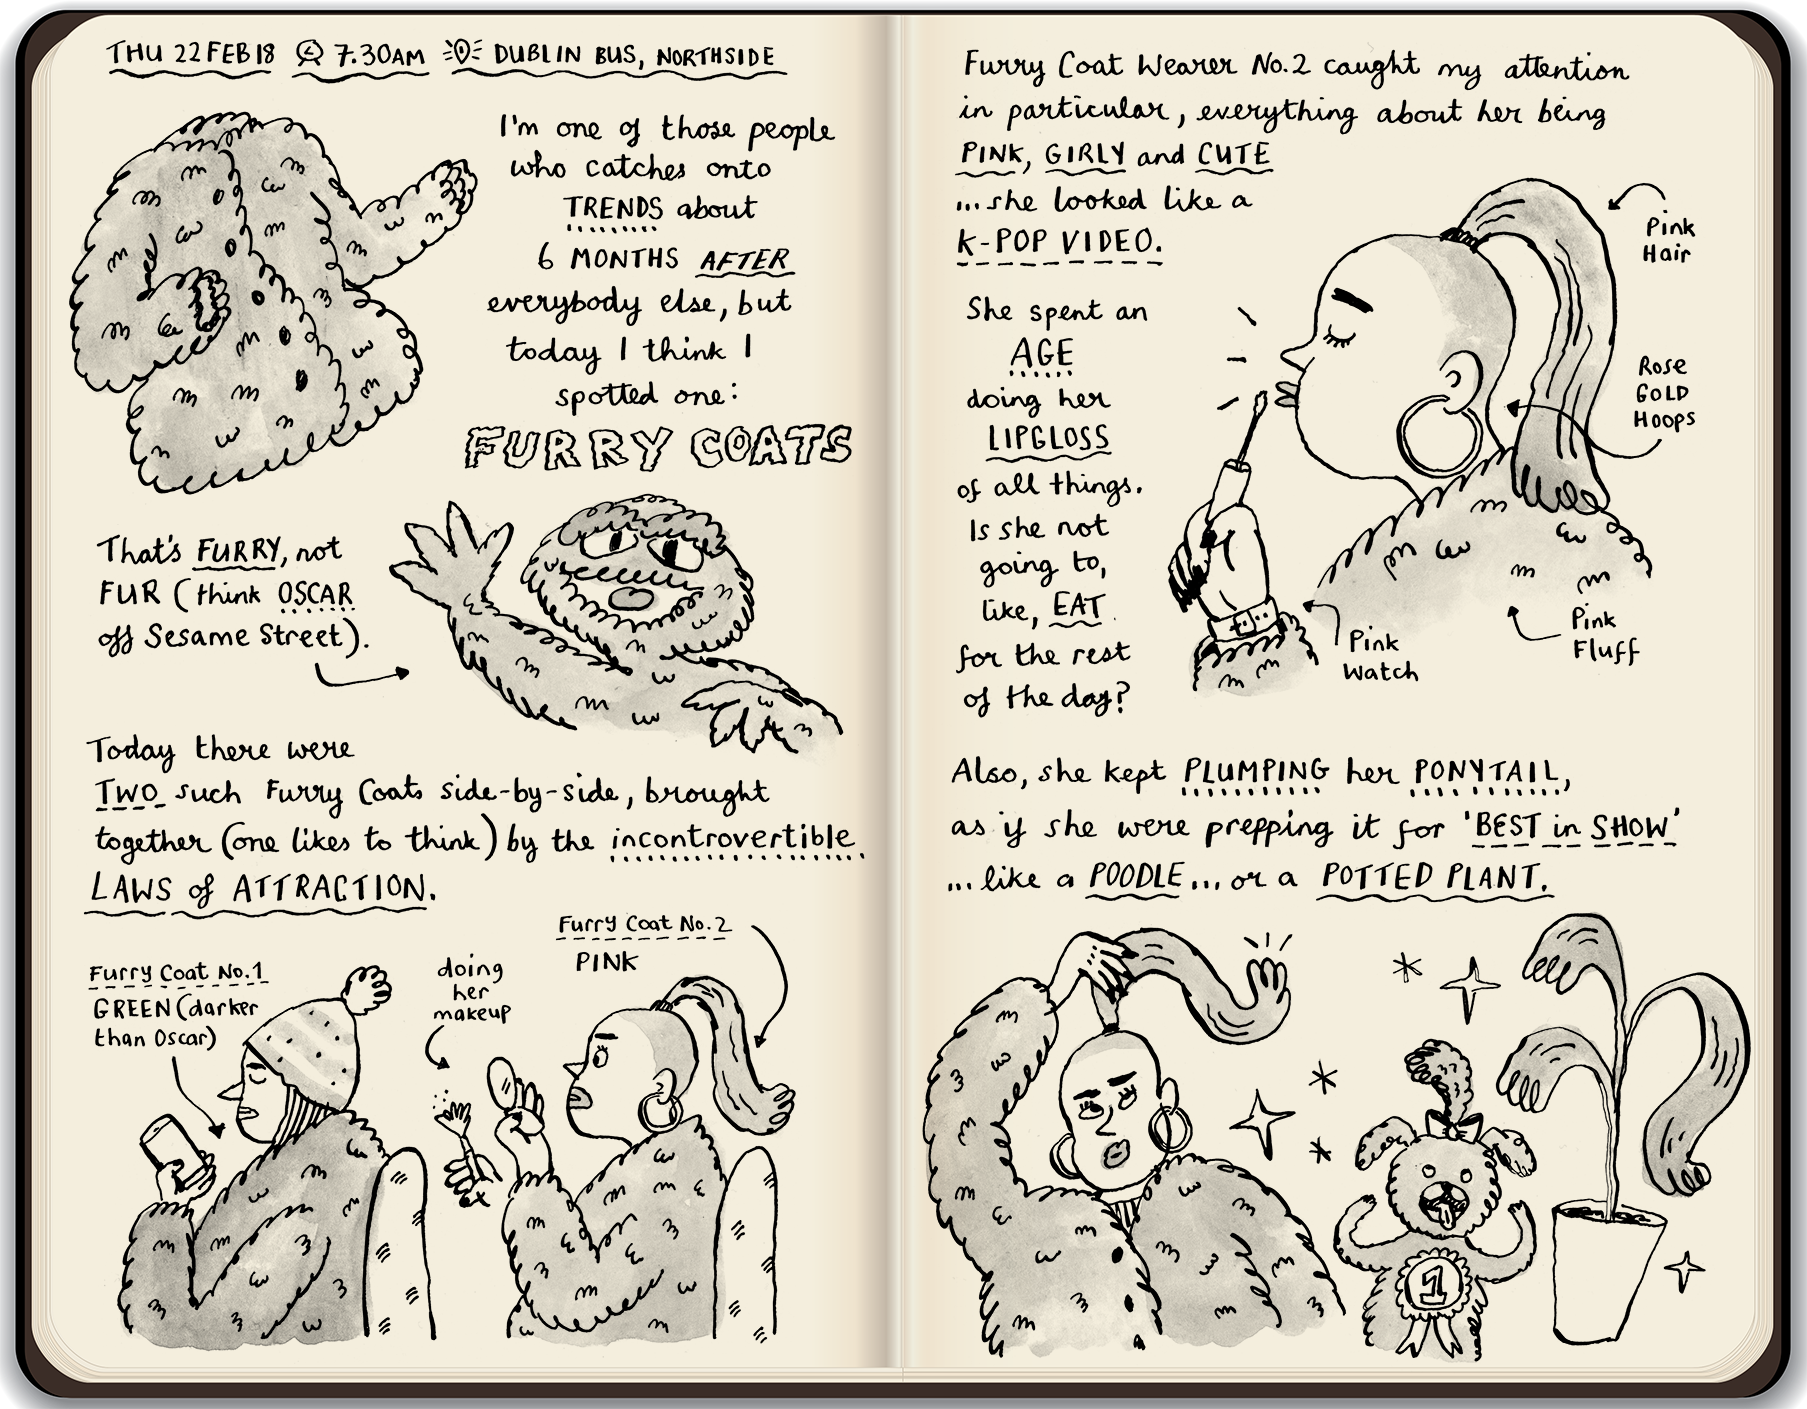 THU 22 FEB 18 7.30AM DUBLIN BUS, NORTHSIDE
I'm one of those people
who catches onto
TRENDS about
6 MONTHS AFTER
everybody else, but
today I think I
spotted one:
FURRY COATS
That's FURRY, not
FUR (think OSCAR
off Sesame Street).
Today there were
TWO such Furry Coats side-by-side, brought
together (one likes to think) by the incontrovertible
LAWS of ATTRACTION.
Furry Coat No.1
GREEN (darker
than Oscar)
doing
her
makeup
Furry Coat No.2
PINK
Furry Coat Wearer No.2 caught my attention
in particular, everything about her being
PINK, GIRLY and CUTE
...she looked like a
K-POP VIDEO.
She spent an
AGE
doing her
LIPGLOSS
of all things.
Is she not
going to,
like, EAT
for the rest
of the day?
Pink
Hair
Rose
GOLD
HOOPS
Pink
Watch
Pink
Fluff
Also, she kept PLUMPING her PONYTAIL,
as if she were prepping it for 'BEST in SHOW'
...like a POODLE... or a POTTED PLANT.
1